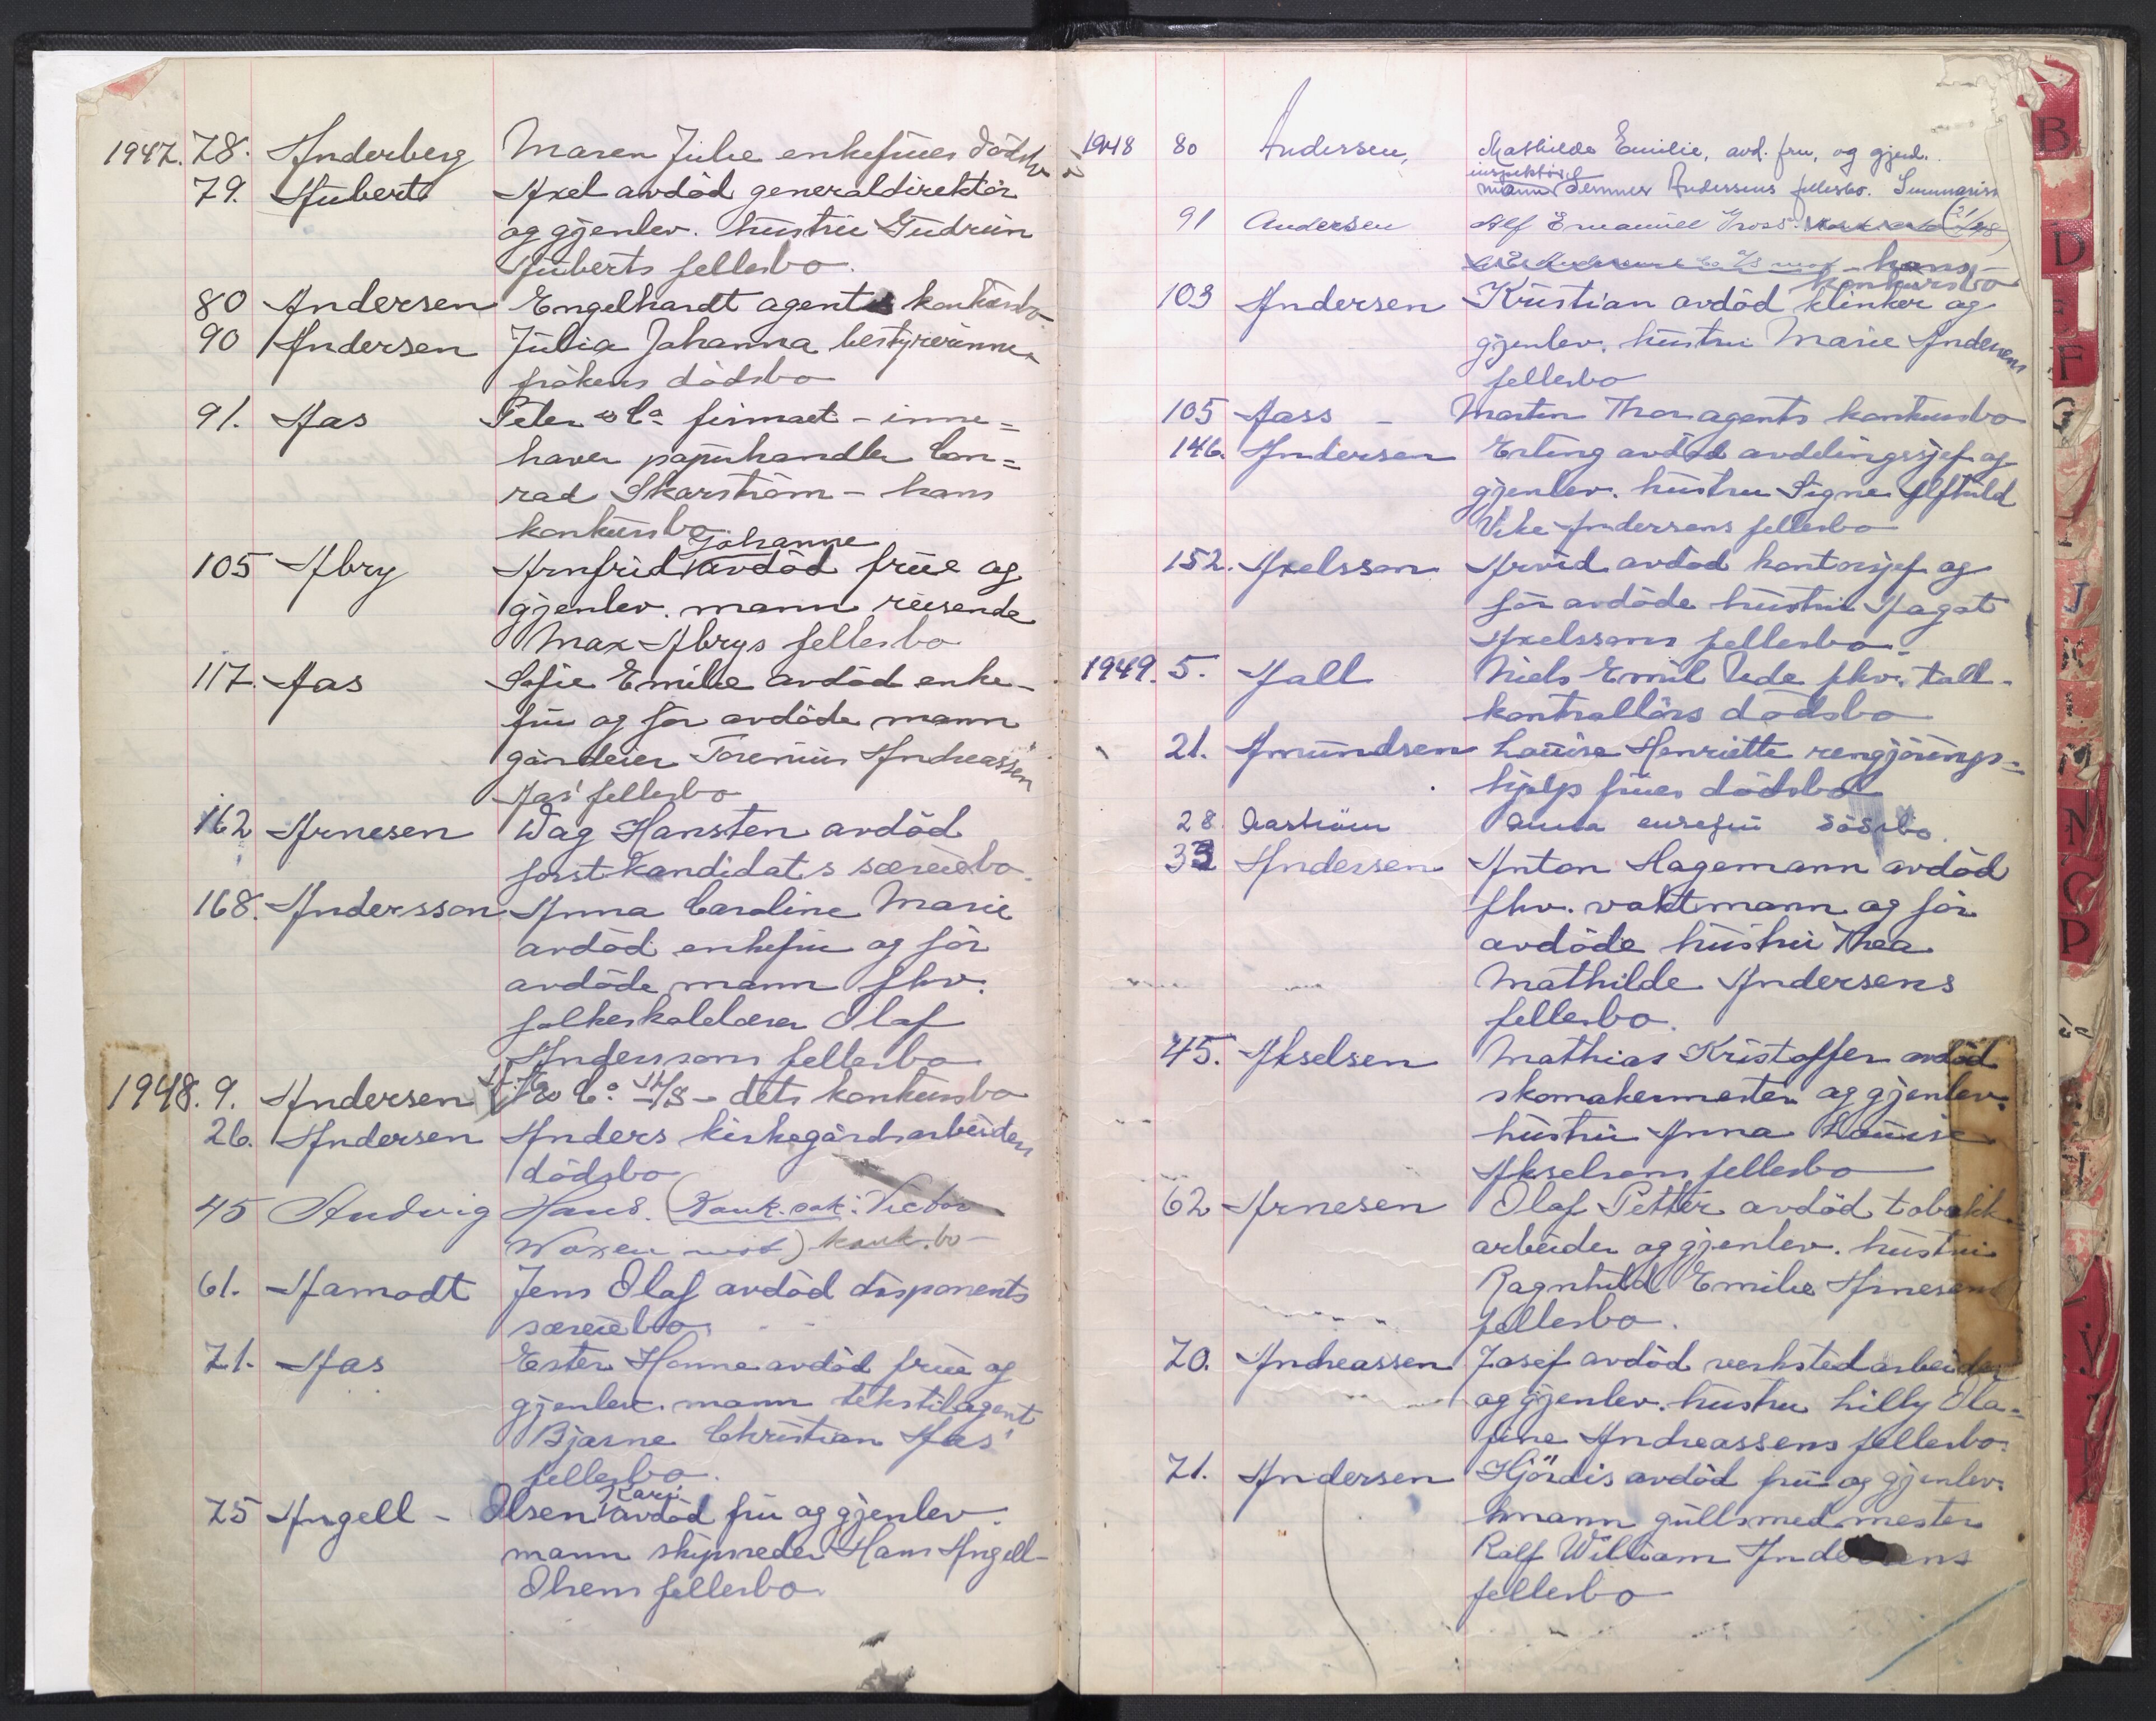 1947. 78. Anderberg Maren Julie enkefrues dödsbo
79. Aubert Axel avdöd generaldirektör
og gjenlev. hustru Gudrun
Auberts fellesbo.
80 Andersen Engelhardt agents konkursbo
90 Andersen Julia Johanna bestyrerinne,
frökens dödsbo
91. Aas Peter & Co firmaet - inne=
haver papirhandler Con=
rad Skarström - hans
konkursbo.
Johanne
105 Abry Arnfrid avdöd frue og
gjenlev. mann reisende
Max Abrys fellesbo
117. Aas Sofie Emilie avdöd enke-
fru og för avdöde mann
gårdeier Andreassen
Aas' fellesbo
162 Arnesen Dag Hansten avdöd
forstkandidats særeiebo.
168. Andersson Anna Caroline Marie
avdöd enkefru og för
avdöde mann fhv.
folkeskolelærer Olaf
Anderssons fellesbo
1948. 9. Andersen & Co. A/S - dets konkursbo
26. Andersen Anders kirkegårdsarbeiders
dödsbo
45 Andvig Hans. (Konk.sak: Victor
Woxen mot) konk.bo -
61. Aamodt Jens Olaf avdöd disponents
særeiebo.
71. Aas Ester Hanne avdöd frue og
gjenlev. mann tekstilagent
Bjarne Christian Aas'
fellesbo.
Kari
75 Angell - Olsen avdöd fru og gjenlev.
mann skipsreder Hans Angell-
Olsens fellesbo.
1948 80 Andersen, Mathilde Emilie, avd. fru, og gjenl.
inspektör
mann Andersens fellesbo. Summarisk
91 Andersen Alf Emanuell Gross. (21/ 48)
- hans -
konkursbo
103 Andersen Kristian avdöd klinker og
gjenlev. hustru Marie Andersens
fellesbo
105 Aass - Martin Thor agents konkursbo
146. Andersen Erling avdöd avdelingssjef og
gjenlev. hustru Signe Alfhild
Vike Andersens fellesbo
152. Axelsson Arvid avdöd kontorsjef og
för avdöde hustru Aagot
Axelssons fellesbo.
1949. 5. Aall Niels Emil Ude fhv. toll-
kontrollörs dödsbo
21. Amundsen Louise Henriette rengjörings=
hjelp frues dödsbo
28. Aaström Anna enkefru dödsbo.
33 Andersen Anton Hagemann avdöd
fhv. vaktmann og för
avdöde hustru Thea
Mathilde Andersens
fellesbo.
45. Akselsen Mathias Kristoffer avdöd
skomakermester og gjenlev.
hustru Anna Louise
Akselsens fellesbo
62 Arnesen Olaf Petter avdöd tobakk
arbeider og gjenlev. hustru
Ragnhild Emilie Arnesens
fellesbo.
70. Andreassen Josef avdöd verkstedarbeider
og gjenlev. hustru Lilly Ola=
fine Andreassens fellesbo.
71. Andersen Hjördis avdöd fru og gjenlev.
mann gullsmedmester
Ralf William Andersens
fellesbo
B
D
E
F
G
J
K
M
N
O
P